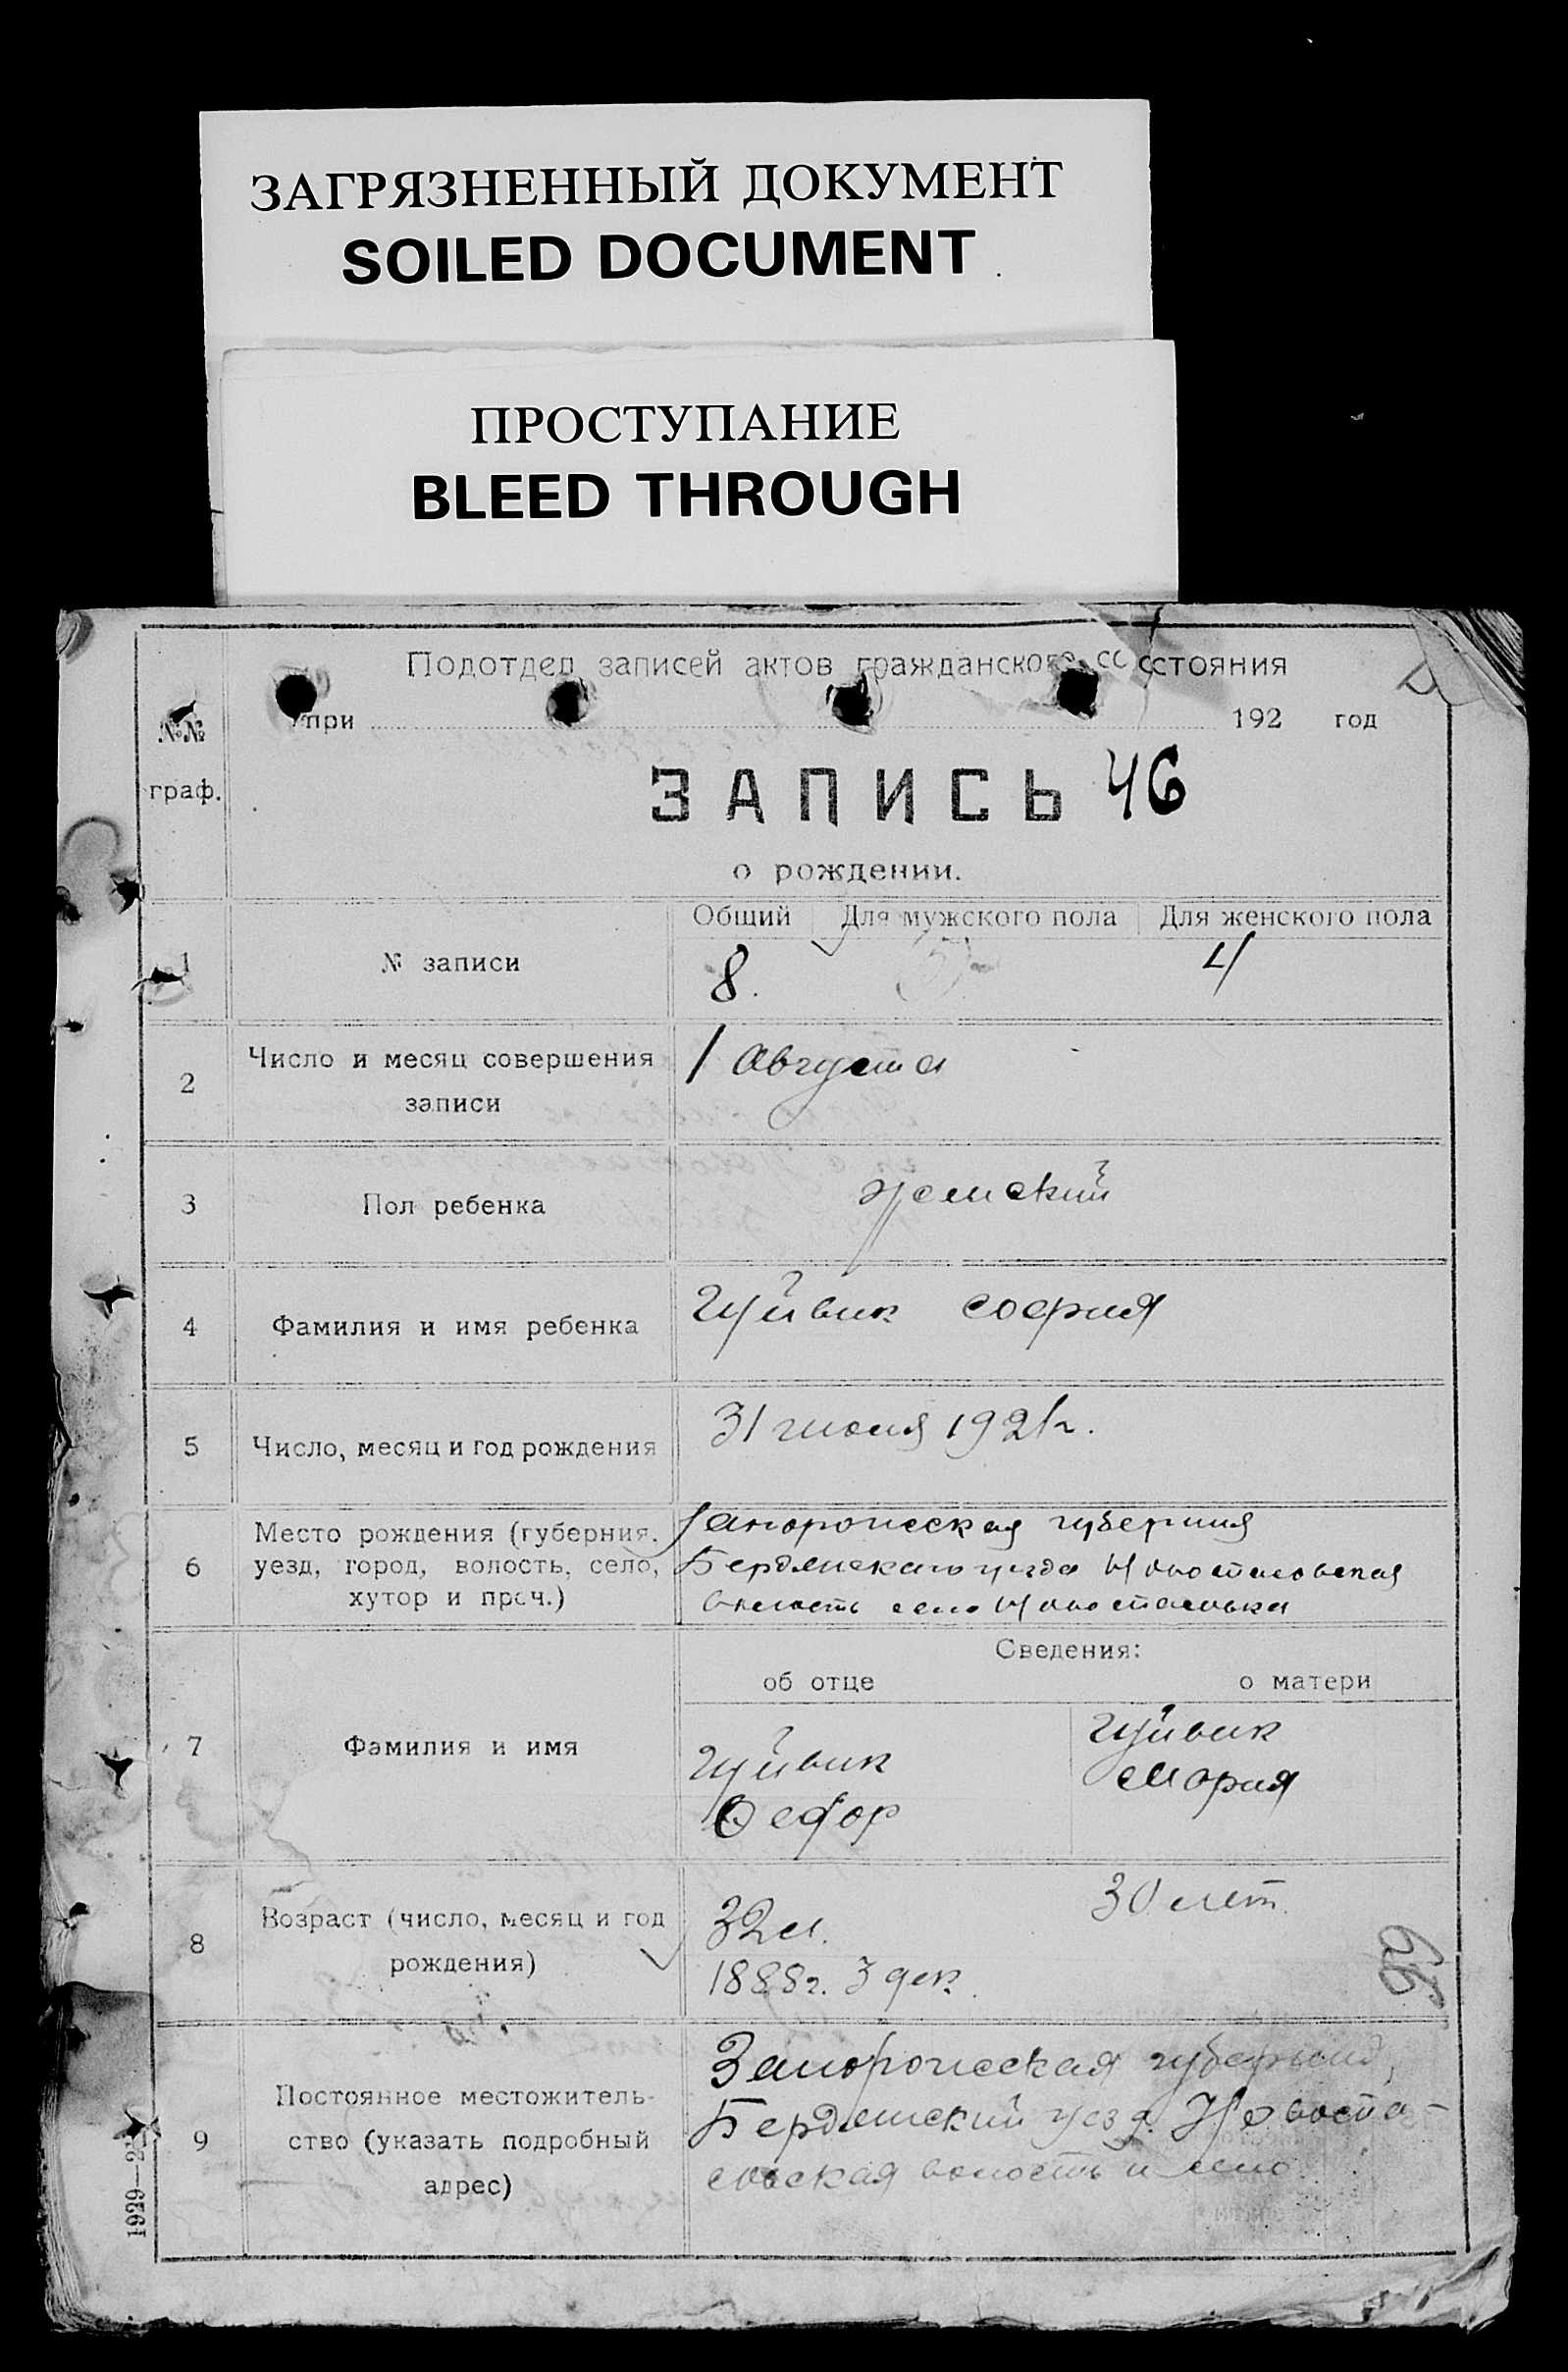 ЗАГРЯЗНЕННЫЙ ДОКУМЕНТ
SOILED DOCUMENT
ПРОСТУПАНИЕ
BLEED THROUGH
Подотдел записей актов гражданского состояния
№№ при 192 год
граф.
ЗАПИСЬ 46
о рождении.
Общий Для мужского пола Для женского пола
1 № записи 8. 4
2 Число и месяц совершения 1 Августа
записи
3 Пол ребенка женский
4 Фамилия и имя ребенка Гуйвик София
5 Число, месяц и год рождения 31 июля 1921г.
6 Место рождения (губерния, Запорожская губерния
уезд, город, волость, село, Бердянскаго уезда Новоспасовская
хутор и проч.) волость село Новоспасовка
Сведения:
об отце о матери
7 Фамилия и имя Гуйвик Гуйвик
Федор Мария
8 Возраст (число, месяц и год 32 л. 30 лет.
рождения) 1888г. 3 дек.
9 Постоянное местожитель- Запорожская губерния,
ство (указать подробный Бердянский уезд Новоспа-
адрес) совская волость и село
1929—2